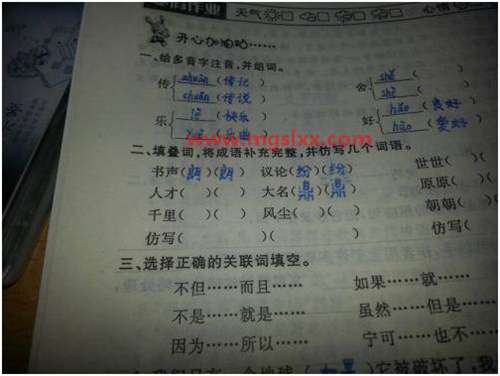 天气 心情
开心加油站……
一、给多音字注音,并组词。
传 zhuàn (传记) 舍 shě ( )
chuán (传说) shè ( )
乐 lè (快乐) 好 hǎo (良好)
yuè (乐曲) hào (爱好)
www.mgslxx.com
二、填叠词,将成语补充完整,并仿写几个词语。
书声(朗)(朗) 议论(纷)(纷) 世世(
人才( )( ) 大名(鼎)(鼎) 原原(
千里( )( ) 风尘( )( ) 朝朝(
仿写( ) ( ) (
三、选择正确的关联词填空。
不但……而且…… 如果……就……
不是……就是…… 虽然……但是……
因为……所以…… 宁可……也不……
它被破坏了,我